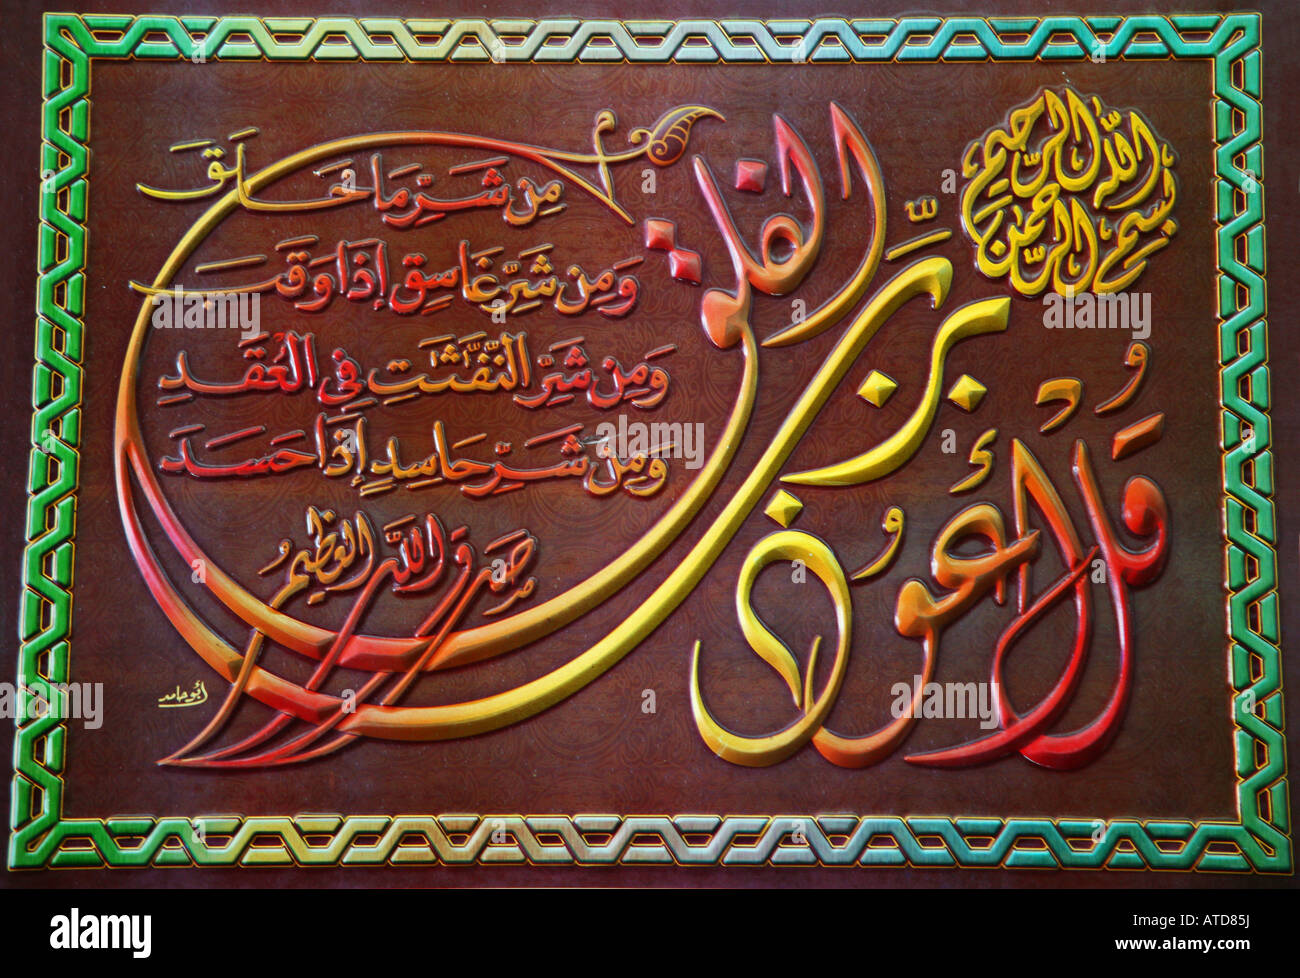 بسم الله الرحمن الرحيم
قل أعوذ برب الفلق
مِن شَرِّ مَا خَلَقَ
وَمِن شَرِّ غَاسِقٍ إِذَا وَقَبَ
وَمِن شَرِّ النَّفَّثَتِ فِي الْعُقَدِ
وَمِن شَرِّ حَاسِدٍ إِذَا حَسَدَ
صدق الله العظيم
أبو حامد
alamy
Image ID: ATD85J
www.alamy.com